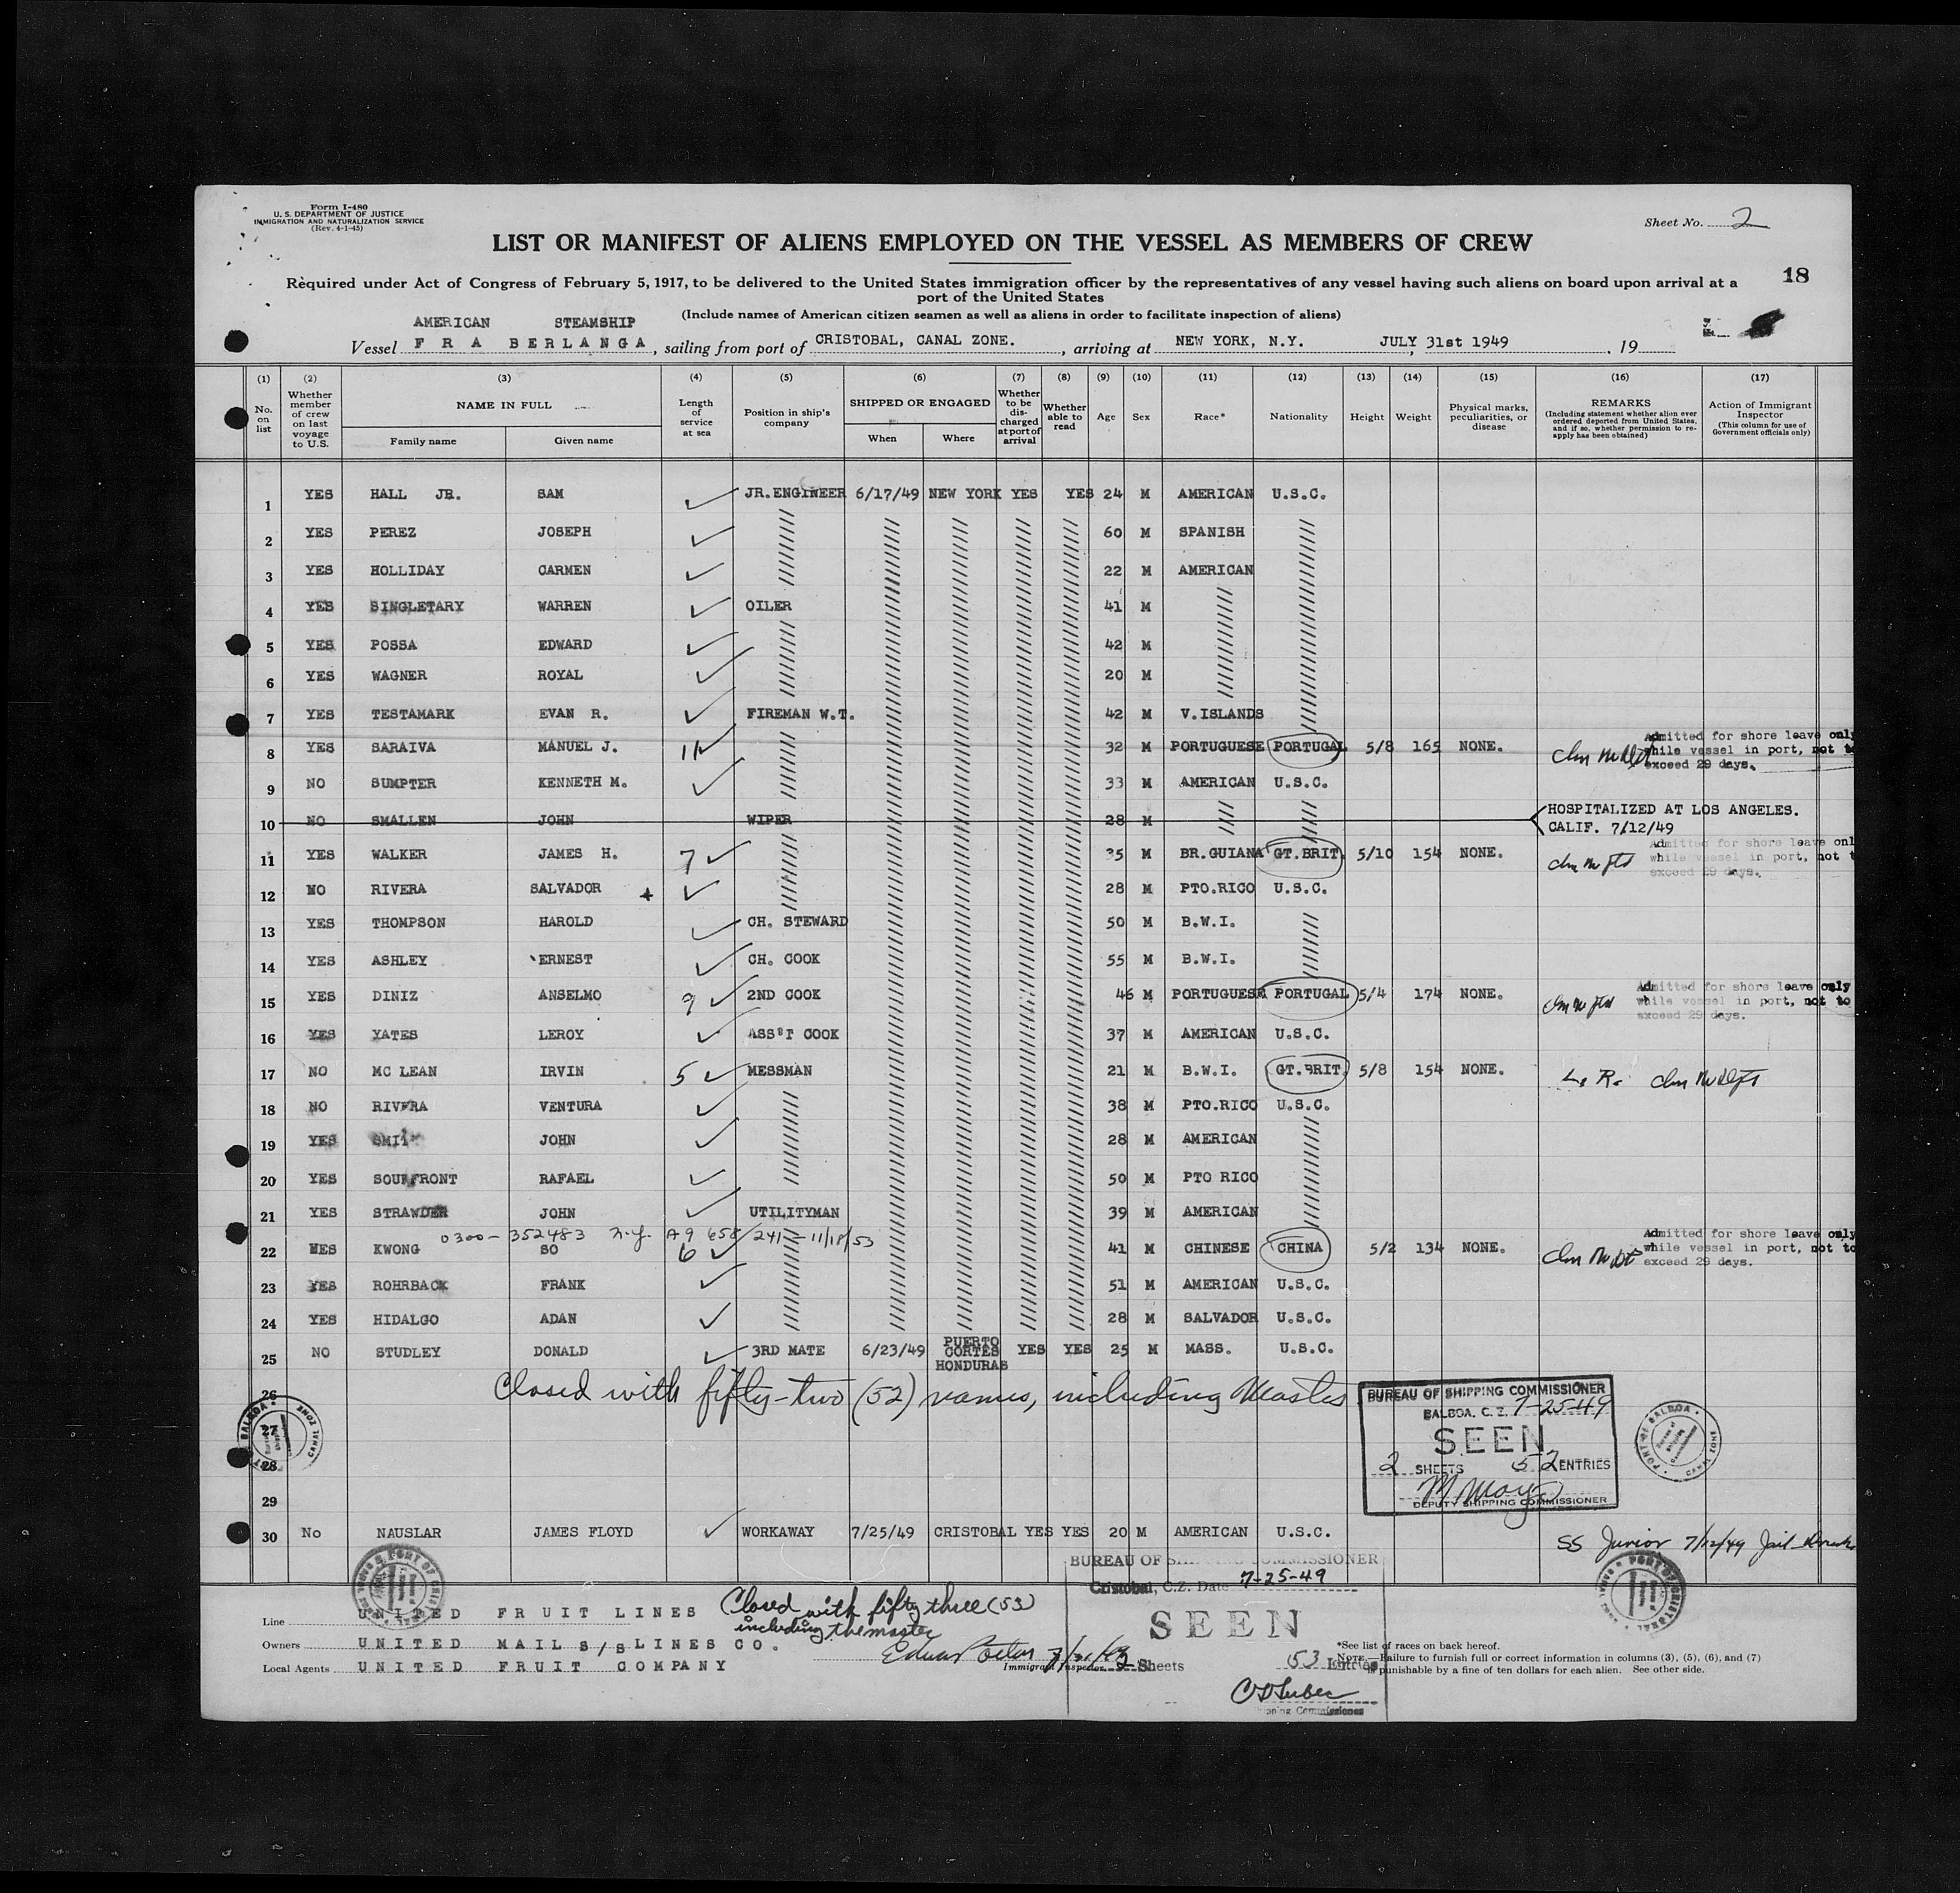 Form I-480
U. S. DEPARTMENT OF JUSTICE
IMMIGRATION AND NATURALIZATION SERVICE
(Rev. 4-1-45)
Sheet No. 2
LIST OR MANIFEST OF ALIENS EMPLOYED ON THE VESSEL AS MEMBERS OF CREW
18
Required under Act of Congress of February 5, 1917, to be delivered to the United States immigration officer by the representatives of any vessel having such aliens on board upon arrival at a
port of the United States
(Include names of American citizen seamen as well as aliens in order to facilitate inspection of aliens)
AMERICAN STEAMSHIP
Vessel FRA BERLANGA, sailing from port of CRISTOBAL, CANAL ZONE., arriving at NEW YORK, N.Y. JULY 31st 1949, 19
(1) (2) (3) (4) (5) (6) (7) (8) (9) (10) (11) (12) (13) (14) (15) (16) (17)
No. on list
Whether member of crew on last voyage to U.S.
NAME IN FULL
Family name Given name
Length of service at sea
Position in ship's company
SHIPPED OR ENGAGED
When Where
Whether to be discharged at port of arrival
Whether able to read
Age Sex Race* Nationality Height Weight
Physical marks, peculiarities, or disease
REMARKS
(Including statement whether alien ever ordered deported from United States, and if so, whether permission to reapply has been obtained)
Action of Immigrant Inspector
(This column for use of Government officials only)
1 YES HALL JR. SAM JR.ENGINEER 6/17/49 NEW YORK YES YES 24 M AMERICAN U.S.C.
2 YES PEREZ JOSEPH 60 M SPANISH
3 YES HOLLIDAY CARMEN 22 M AMERICAN
4 YES SINGLETARY WARREN OILER 41 M
5 YES POSSA EDWARD 42 M
6 YES WAGNER ROYAL 20 M
7 YES TESTAMARK EVAN R. FIREMAN W.T. 42 M V.ISLANDS
8 YES SARAIVA MANUEL J. 11 32 M PORTUGUESE PORTUGAL 5/8 165 NONE.
Admitted for shore leave only
while vessel in port, not to
exceed 29 days.
9 NO SUMPTER KENNETH M. 33 M AMERICAN U.S.C.
10 NO SMALLEN JOHN WIPER 28 M HOSPITALIZED AT LOS ANGELES.
CALIF. 7/12/49
11 YES WALKER JAMES H. 7 35 M BR.GUIANA GT.BRIT. 5/10 154 NONE.
Admitted for shore leave only
while vessel in port, not
exceed 29 days.
12 NO RIVERA SALVADOR 28 M PTO.RICO U.S.C.
13 YES THOMPSON HAROLD CH. STEWARD 50 M B.W.I.
14 YES ASHLEY ERNEST CH. COOK 55 M B.W.I.
15 YES DINIZ ANSELMO 9 2ND COOK 46 M PORTUGUESE PORTUGAL 5/4 174 NONE.
Admitted for shore leave only
while vessel in port, not to
exceed 29 days.
16 YES YATES LEROY ASS'T COOK 37 M AMERICAN U.S.C.
17 NO MC LEAN IRVIN 5 MESSMAN 21 M B.W.I. GT.BRIT. 5/8 154 NONE. L. R.
18 NO RIVERA VENTURA 38 M PTO.RICO U.S.C.
19 YES JOHN 28 M AMERICAN
20 YES SOUFFRONT RAFAEL 50 M PTO RICO
21 YES STRAWDER JOHN UTILITYMAN 39 M AMERICAN
0300-352483 n.y. A9 658 241 - 11/18/53
22 YES KWONG SO 6 41 M CHINESE CHINA 5/2 134 NONE.
Admitted for shore leave only
while vessel in port, not to
exceed 29 days.
23 YES ROHRBACK FRANK 51 M AMERICAN U.S.C.
24 YES HIDALGO ADAN 28 M SALVADOR U.S.C.
25 NO STUDLEY DONALD 3RD MATE 6/23/49 PUERTO CORTES HONDURAS YES YES 25 M MASS. U.S.C.
26 Closed with fifty-two (52) names, including Master
BUREAU OF SHIPPING COMMISSIONER
BALBOA, C. Z. 7-25-49
SEEN
2 SHEETS 52 ENTRIES
DEPUTY SHIPPING COMMISSIONER
PORT OF BALBOA CANAL ZONE
27
28
29
30 No NAUSLAR JAMES FLOYD WORKAWAY 7/25/49 CRISTOBAL YES YES 20 M AMERICAN U.S.C.
SS Junior 7/12/49 Jail
BUREAU OF SHIPPING COMMISSIONER
Cristobal, C.Z. Date 7-25-49
SEEN
2 Sheets 53 Entries
Shipping Commissioner
Line UNITED FRUIT LINES
Closed with fifty three (53)
including the master
Owners UNITED MAIL S/S LINES CO.
Local Agents UNITED FRUIT COMPANY
Immigrant Inspector
*See list of races on back hereof.
NOTE.—Failure to furnish full or correct information in columns (3), (5), (6), and (7)
is punishable by a fine of ten dollars for each alien. See other side.